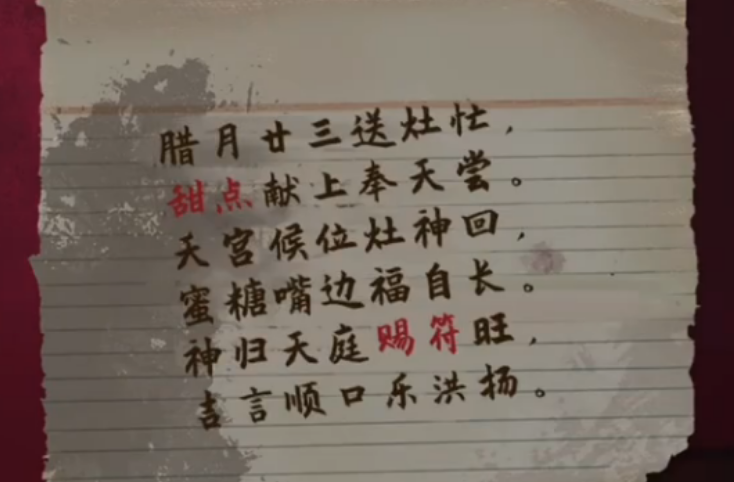 腊月廿三送灶忙，
甜点献上奉天尝。
天宫候位灶神回，
蜜糖嘴边福自长。
神归天庭赐符旺，
吉言顺口乐洪扬。